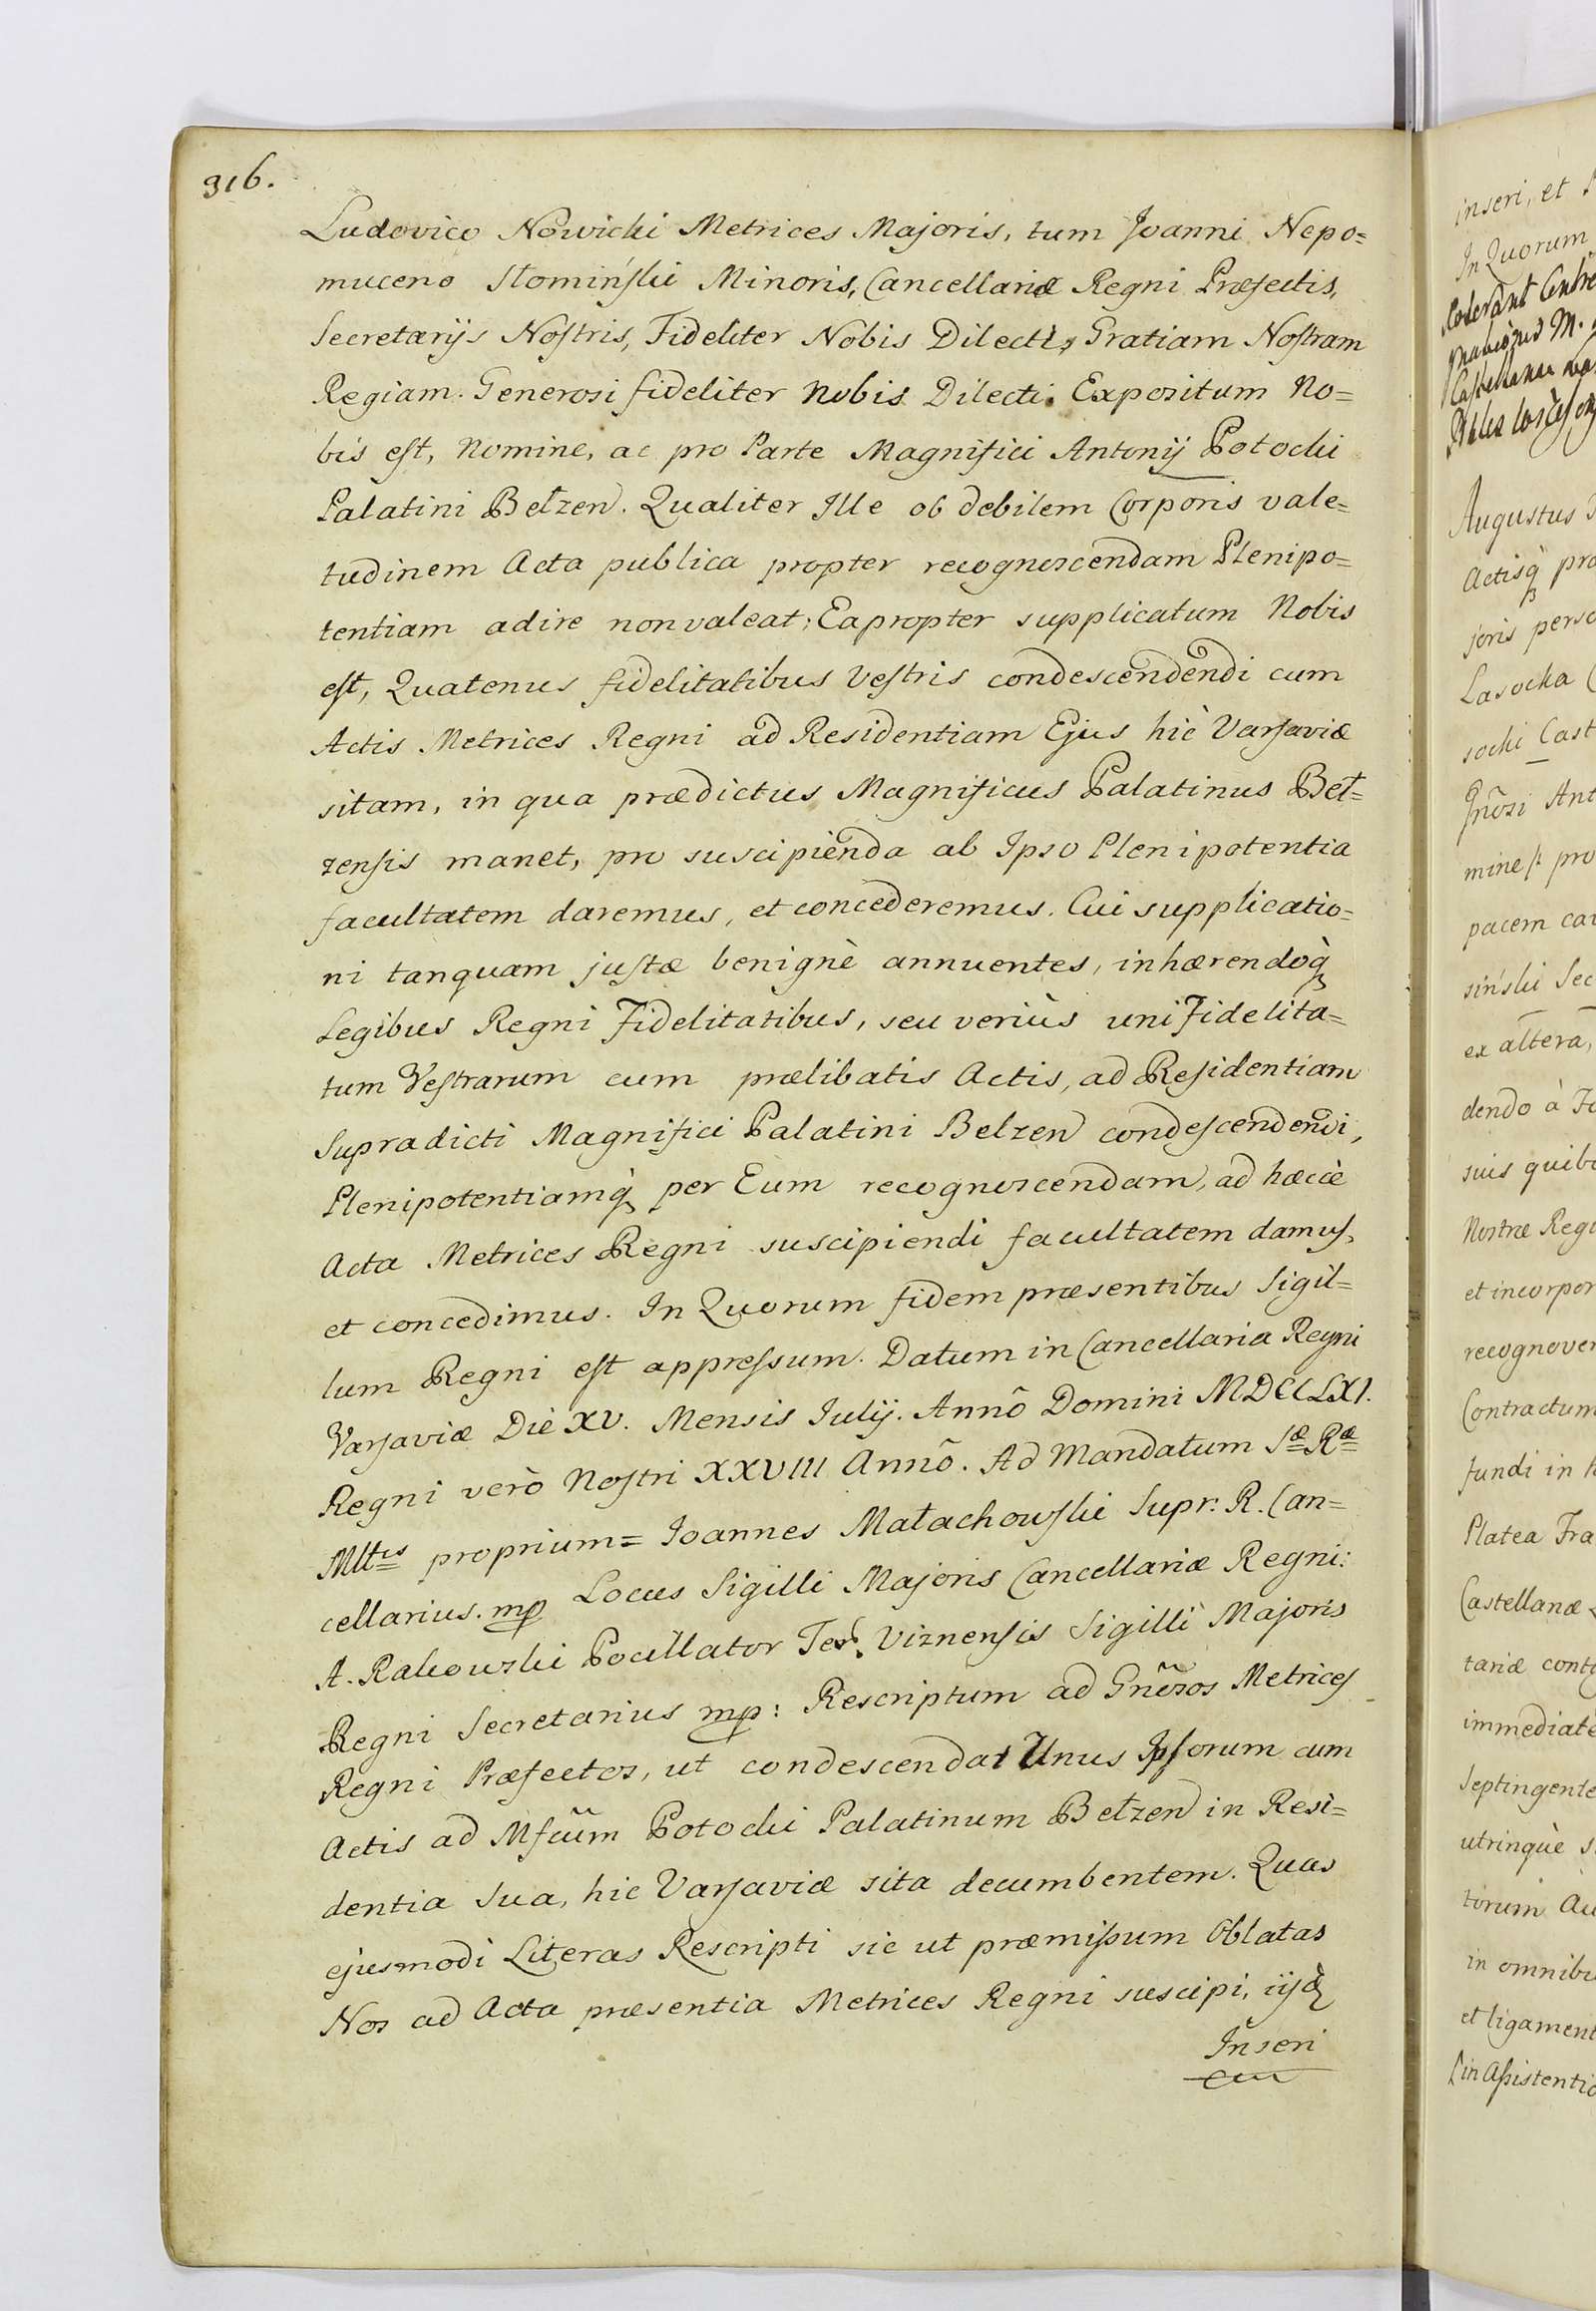 316.
Ludovico Nowicki Metrices Majoris, tum Joanni Nepo=
muceno Słomiński Minoris, Cancellariæ Regni Præfectis,
Secretarijs Nostris, Fideliter Nobis Dilectis, Gratiam Nostram
Regiam. Generosi fideliter Nobis Dilecti. Expositum No=
bis est, Nomine, ac pro Parte Magnifici Antonij Potocki
Palatini Bełzen. Qualiter Ille ob debilem Corporis vale=
tudinem Acta publica propter recognoscendam Plenipo=
tentiam adire non valeat; Eapropter supplicatum Nobis
est, Quatenus fidelitatibus Vestris condescendendi cum
Actis Metrices Regni ad Residentiam Ejus hic Varsaviæ
sitam, in qua prædictus Magnificus Palatinus Beł=
zensis manet, pro suscipienda ab Ipso Plenipotentia
facultatem daremus, et concederemus. Cui supplicatio=
ni tanquam justæ benignè annuentes, inhærendoq̀
Legibus Regni Fidelitatibus, seu veriùs uni Fidelita=
tum Vestrarum cum prælibatis Actis, ad Residentiam
Supradicti Magnifici Palatini Belzen condescendendi,
Plenipotentiamq̀ per Eum recognoscendam, ad hæcce
Acta Metrices Regni suscipiendi facultatem damus,
et concedimus. In Quorum fidem præsentibus Sigil=
lum Regni est appressum. Datum in Cancellaria Regni
Varsaviæ Die XV. Mensis Julij. Annô Domini MDCCLXI.
Regni verò Nostri XXVIII Annô. Ad Mandatum Sæ Ræ
Mttis proprium = Joannes Małachowski Supr: R. Can=
cellarius. mp Locus Sigilli Majoris Cancellariæ Regni:
A. Rakowski Pocillator Ter. Viznensis Sigilli Majoris
Regni Secretarius mp: Rescriptum ad Gn̄ōsos Metrices
Regni Præfectos, ut condescendat Unus Ipsorum cum
Actis ad Mfcūm Potocki Palatinum Bełzen in Resi=
dentia Sua, hic Varsaviæ sita decumbentem. Quas
ejusmodi Literas Rescripti sic ut præmissum Oblatas
Nos ad Acta præsentia Metrices Regni suscipi, iisq̀
Inseri
inseri, et
In Quorum
Augustus
Actisq̀ pro
joris perso
Lasocka
socki Cast
Gn̄ōsi Ant
mine &c pro
pacem cav
siński Sec
ex altera,
dendo à
suis quibu
Nostræ Regi
et incorpor
recognover
Contractum
fundi in
Platea Fra
Castellanæ
tariæ conti
immediatè
Septingente
utrinquè s
torum Au
in omnibu
et ligament
in Assistentia